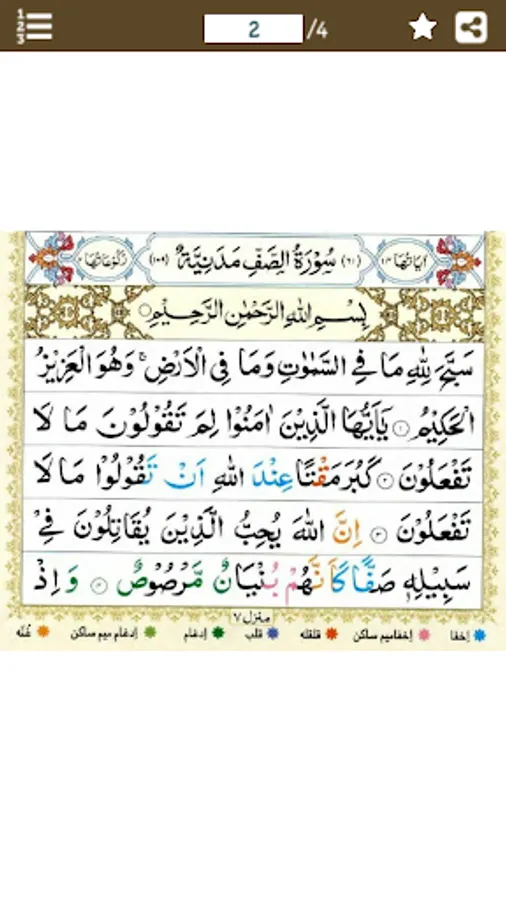 2/4
اٰيَاتُهَا ١٤ (٦١) سُوْرَةُ الصَّفِّ مَدَنِيَّةٌ (١٠٩) رُكُوْعَاتُهَا ٢
بِسْمِ اللّٰهِ الرَّحْمٰنِ الرَّحِيْمِ
سَبَّحَ لِلّٰهِ مَا فِي السَّمٰوٰتِ وَمَا فِي الْاَرْضِ ۚ وَهُوَ الْعَزِيْزُ
الْحَكِيْمُ ۝١ يٰۤاَيُّهَا الَّذِيْنَ اٰمَنُوْا لِمَ تَقُوْلُوْنَ مَا لَا
تَفْعَلُوْنَ ۝٢ كَبُرَ مَقْتًا عِنْدَ اللّٰهِ اَنْ تَقُوْلُوْا مَا لَا
تَفْعَلُوْنَ ۝٣ اِنَّ اللّٰهَ يُحِبُّ الَّذِيْنَ يُقَاتِلُوْنَ فِيْ
سَبِيْلِهٖ صَفًّا كَاَنَّهُمْ بُنْيَانٌ مَّرْصُوْصٌ ۝٤ وَاِذْ
منزل ٧
إخفا إخفامیم ساکن قلقله قلب إدغام إدغام میم ساکن غُنّه